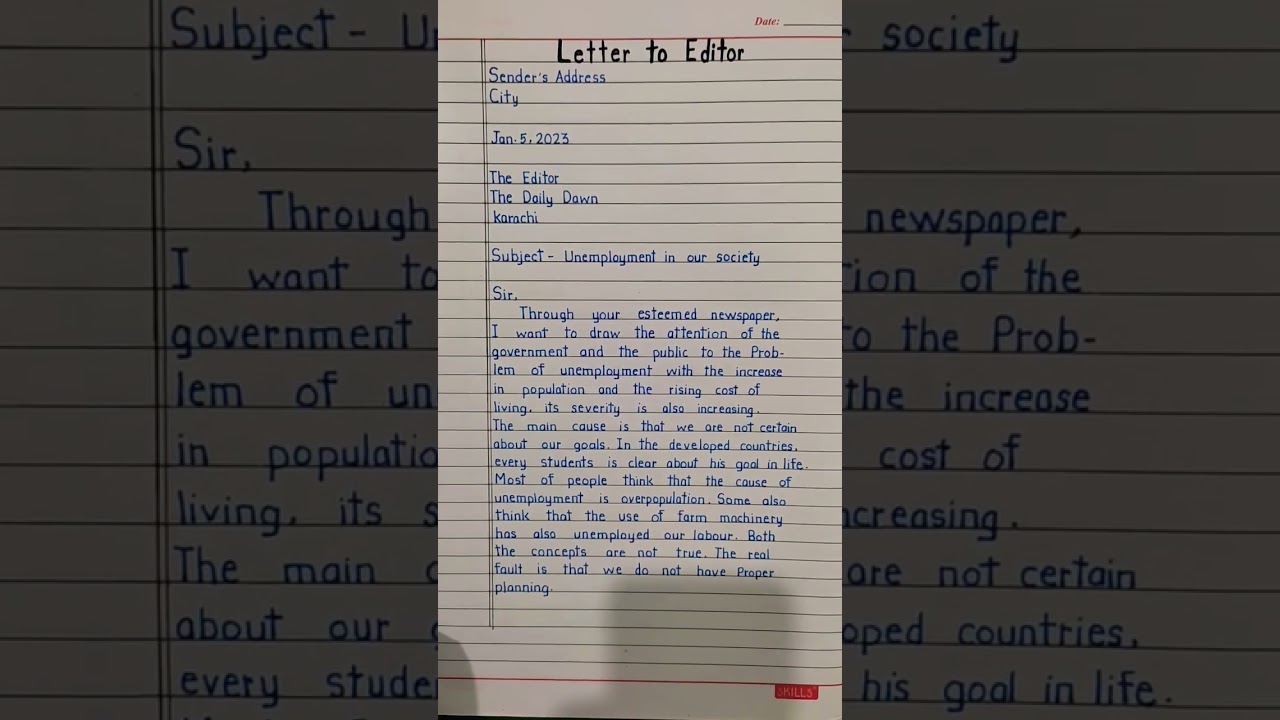 Date:
Letter to Editor
Sender's Address
City
Jan. 5, 2023
The Editor
The Daily Dawn
karachi
Subject - Unemployment in our society
Sir,
Through your esteemed newspaper,
I want to draw the attention of the
government and the public to the Prob-
lem of unemployment with the increase
in population and the rising cost of
living, its severity is also increasing.
The main cause is that we are not certain
about our goals. In the developed countries,
every students is clear about his goal in life.
Most of people think that the cause of
unemployment is overpopulation. Some also
think that the use of farm machinery
has also unemployed our labour. Both
the concepts are not true. The real
fault is that we do not have Proper
planning.
SKILLS